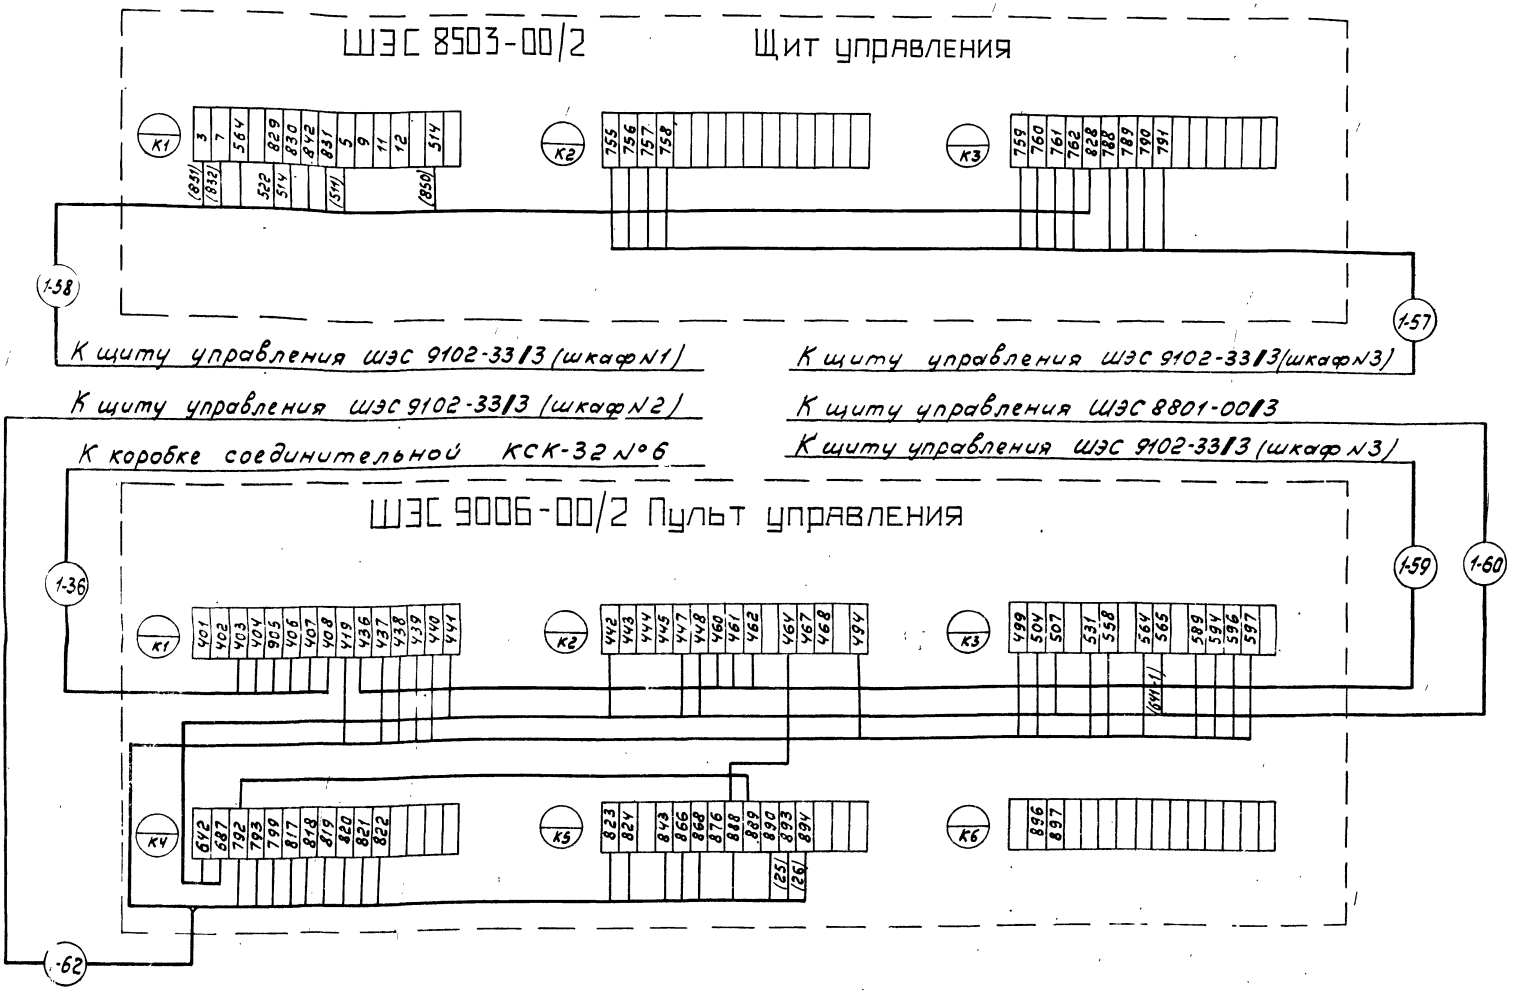 ШЭС 8503-00/2 Щит управления
К1 3 7 564 829 830 842 831 5 9 11 12 514
(831) (832) 522 514 (511) (850)
К2 755 756 757 758
К3 759 760 761 762 828 788 789 790 791
1-58
1-57
К щиту управления ШЭС 9102-33/3 (шкаф N1)
К щиту управления ШЭС 9102-33/3 (шкаф N3)
К щиту управления ШЭС 9102-33/3 (шкаф N2)
К щиту управления ШЭС 8801-00/3
К коробке соединительной КСК-32 №6
К щиту управления ШЭС 9102-33/3 (шкаф N3)
ШЭС 9006-00/2 Пульт управления
1-36
1-59
1-60
К1 401 402 403 404 905 406 407 408 419 436 437 438 439 440 441
К2 442 443 444 445 447 448 460 461 462 464 467 468 494
К3 499 504 507 531 538 564 565 589 594 596 597
(641-1)
К4 642 687 792 793 799 817 818 819 820 821 822
К5 823 824 843 866 868 876 888 889 890 893 894
(25) (26)
К6 896 897
-62